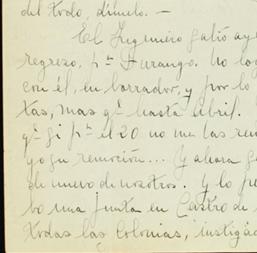 del todo, dímelo. —
El Ingeniero salió ay
regreso, pª Durango. No log
con él, en borrador, y por lo
tas, mas qe hasta abril.
qe si pª el 20 no me las rem
su remoción... Y ahora
de nuevo de nosotros. Y lo p
bo una junta en Castro de
todas las Colonias, instigad